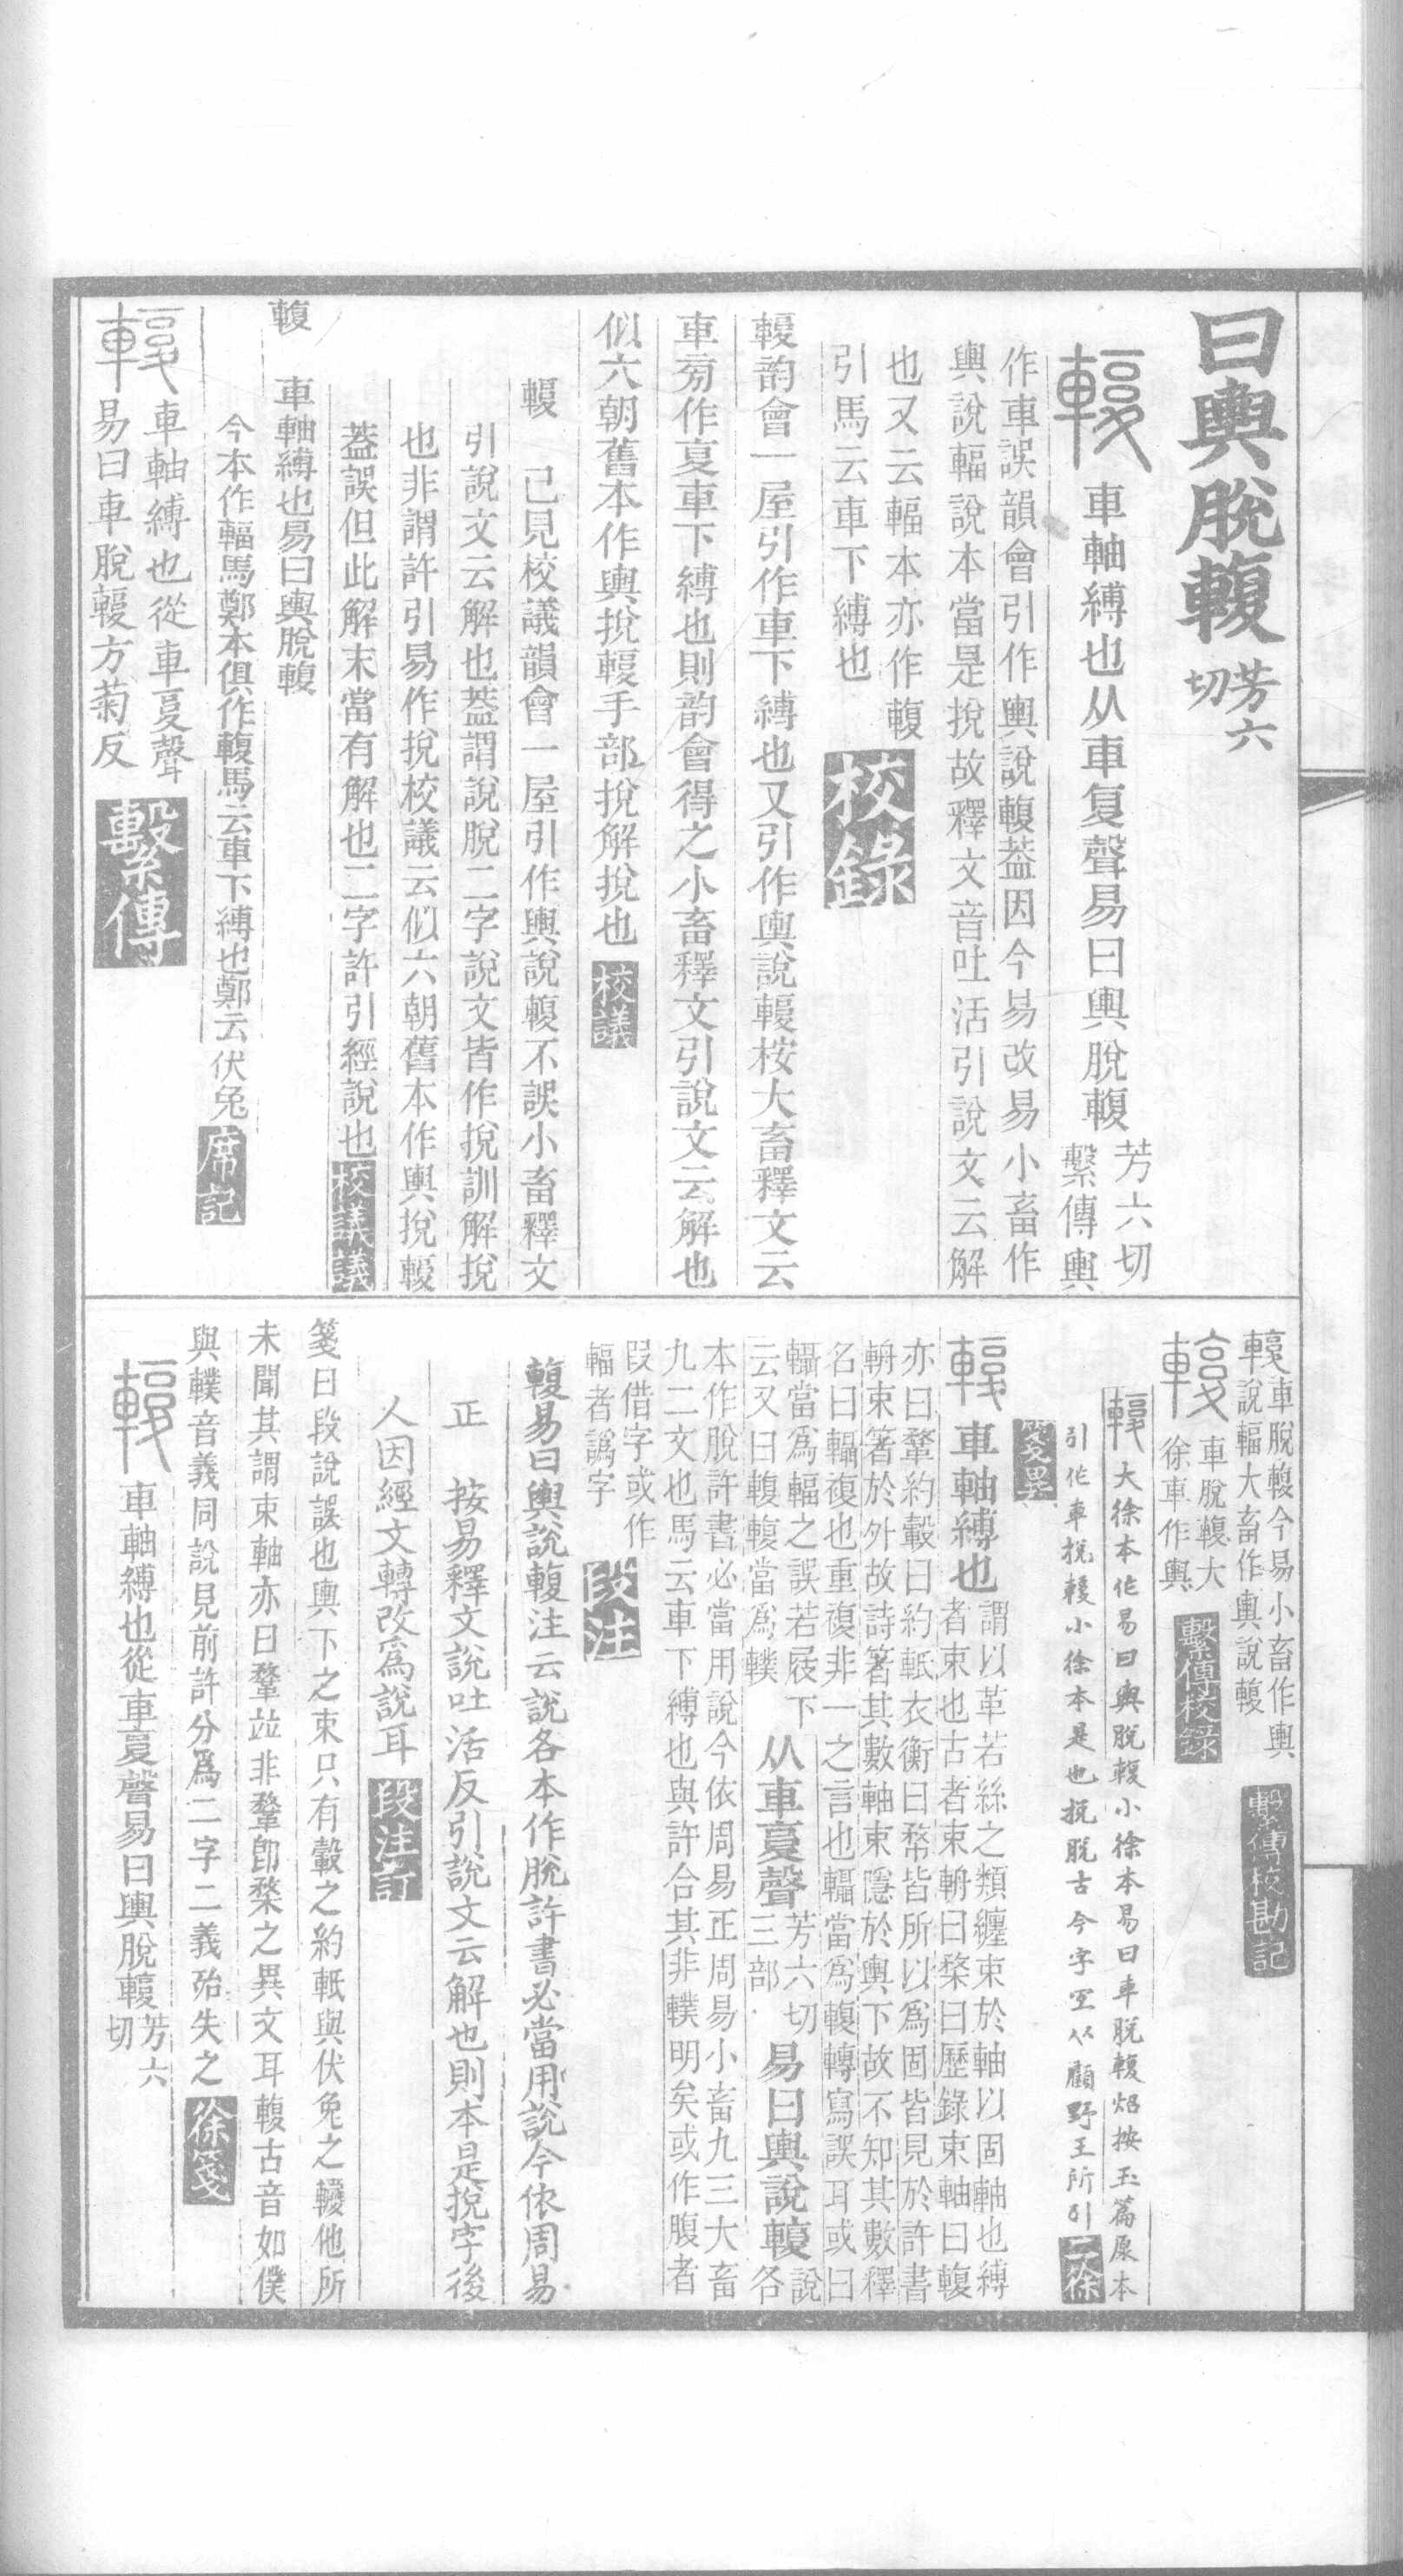 曰輿脫輹芳六切
輹車軸縛也从車复聲易曰輿脫輹芳六切繫傳輿
作車誤韻會引作輿說輹葢因今易改易小畜作
輿說輻說本當是挩故釋文音吐活引說文云解
也又云輻本亦作輹
引馬云車下縛也校錄
輹韵會一屋引作車下縛也又引作輿說輹桉大畜釋文云
車旁作复車下縛也則韵會得之小畜釋文引說文云解也
似六朝舊本作輿挩輹手部挩解挩也校議
輹 已見校議韻會一屋引作輿說輹不誤小畜釋文
引說文云解也葢謂說脫二字說文皆作挩訓解挩
也非謂許引易作挩校議云似六朝舊本作輿挩輹
葢誤但此解末當有解也二字許引經說也校議議
輹 車軸縛也易曰輿脫輹
今本作輻馬鄭本俱作輹馬云車下縛也鄭云伏兔席記
輹車軸縛也從車复聲
易曰車脫輹方菊反繫傳
輹車脫輹今易小畜作輿
說輻大畜作輿說輹繫傳校勘記
輹車脫輹大
徐車作輿繫傳校錄
輹大徐本作易曰輿脫輹小徐本易曰車脫輹炤按玉篇原本
引作車挩輹小徐本是也挩脫古今字宜从顧野王所引二徐
箋異
輹車軸縛也謂以革若絲之類纏束於軸以固軸也縛
者束也古者束輈曰楘曰歷錄束軸曰輹
亦曰鞪約轂曰約軝衣衡曰幦皆所以爲固皆見於許書
輈束箸於外故詩箸其數軸束隱於輿下故不知其數釋
名曰轐複也重複非一之言也轐當爲輹轉寫誤耳或曰
轐當爲輻之誤若屐下
云又曰輹輹當爲轐从車复聲芳六切三部易曰輿說輹說各
本作脫許書必當用說今依周易正周易小畜九三大畜
九二文也馬云車下縛也與許合其非轐明矣或作腹者
叚借字或作
輻者譌字段注
輹易曰輿說輹注云說各本作脫許書必當用說今依周易
正 按易釋文說吐活反引說文云解也則本是挩字後
人因經文轉改爲說耳段注訂
箋曰段說誤也輿下之束只有轂之約軝與伏兔之輹他所
未聞其謂束軸亦曰鞪竝非鞪卽楘之異文耳輹古音如僕
與轐音義同說見前許分爲二字二義殆失之徐箋
輹車軸縛也從車复聲易曰輿脫輹芳六切